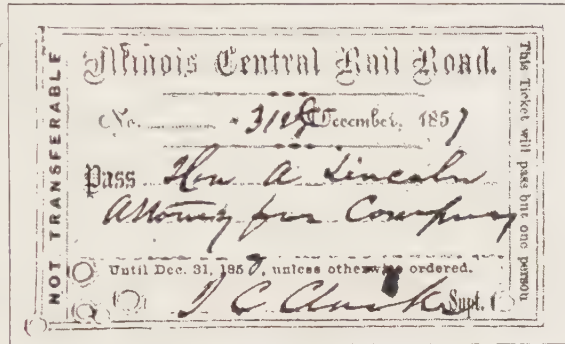 Illinois Central Rail Road.
No. 31st December, 1857
Pass Hon A Lincoln
Attorney for Company
Until Dec. 31, 1858, unless otherwise ordered.
J C Clarke Supt.
NOT TRANSFERABLE
This Ticket will pass but one person